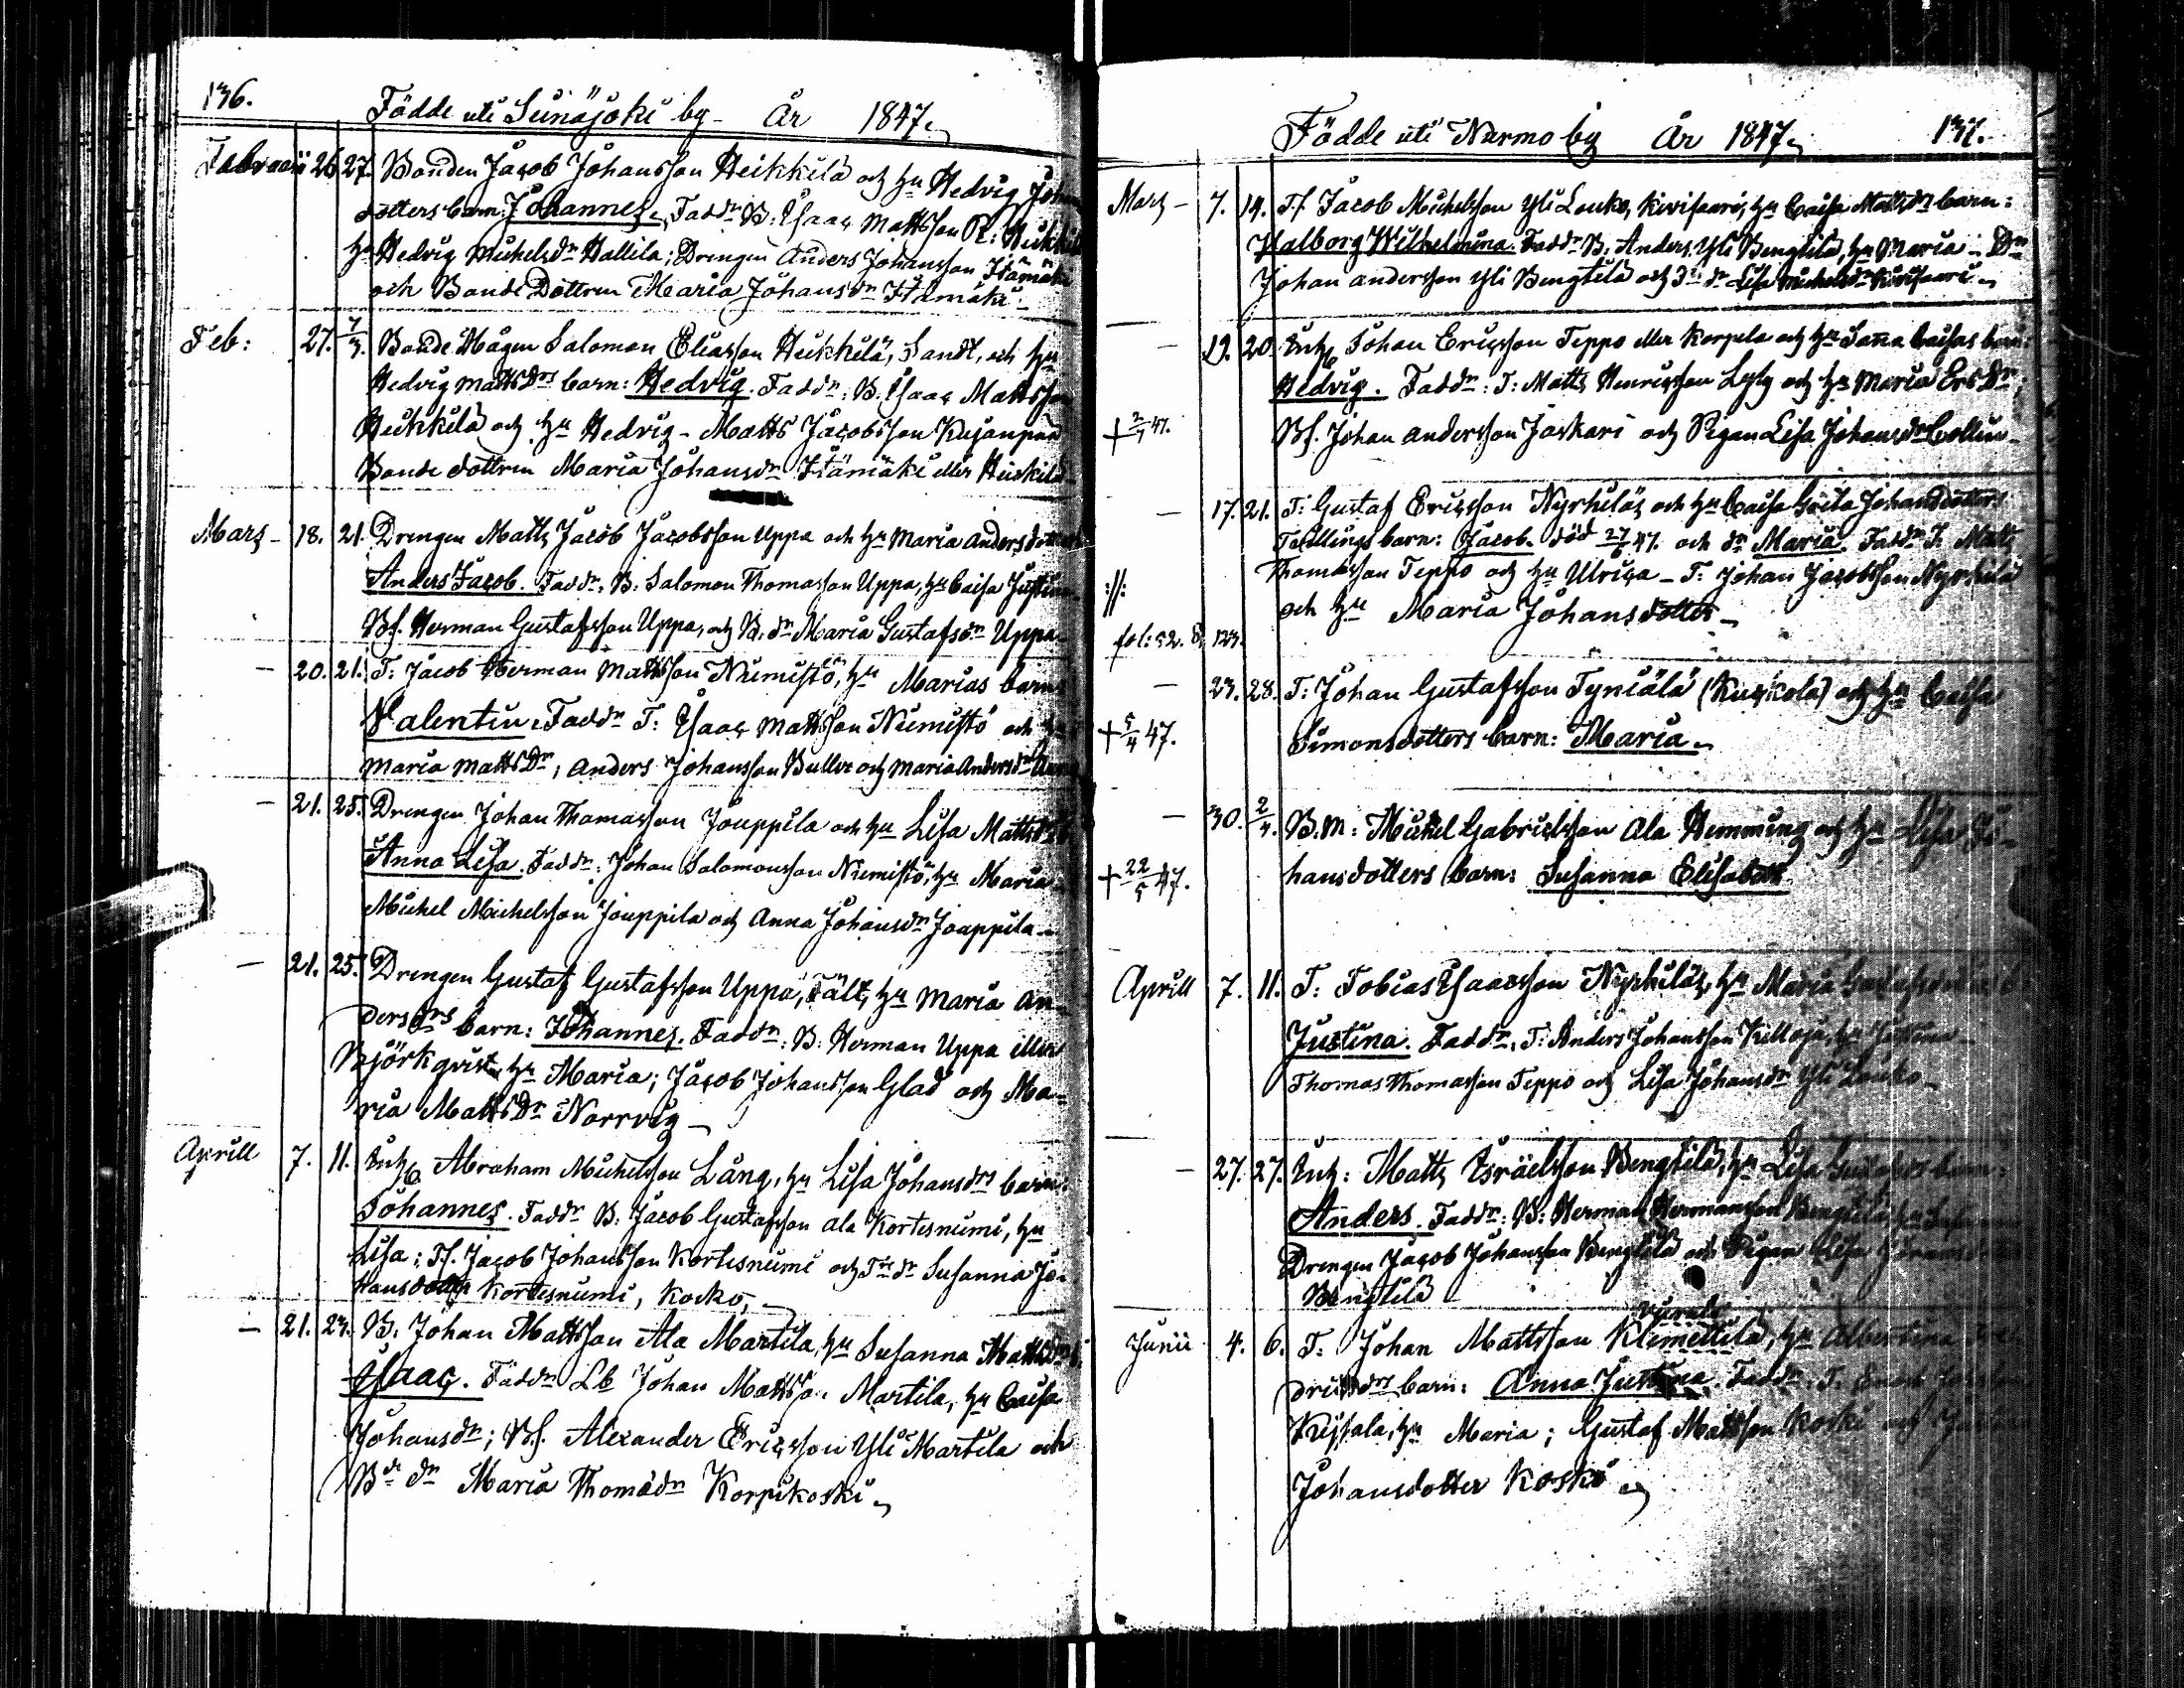 136.
Födde uti Seinäjoki by - År 1847.
Februarii 26. 27. Bonden Jacob Johansson Heikkilä och hu Hedvig Johans
dotters barn: Johannes. Faddr B: Isaac Mattsson R: Heikkilä
hu Hedvig Michelsdr Hallila; Drengen Anders Johansson Itämäki
och Bonde Dottren Maria Johansdr Itämäki.
Feb: 27. 7/3. Bonde Mågen Salomon Eliasson Heikkilä, Sandt, och hu
Hedvig Matts Drs barn: Hedvig. Faddr: B. Isaac Mattsson
Heikkilä och hu Hedvig - Matts Jacobsson Kujanpää
Bonde dottren Maria Johansdr Itämäki eller Heikkilä
Mars - 18. 21. Drengen Matts Jacob Jacobsson Uppa och hu Maria Andersdotters
Anders Jacob. Faddr: B: Salomon Thomasson Uppa, hu Caisa Justina
Bf. Herman Gustafsson Uppa, och B. dr Maria Gustafsdr Uppa
- 20. 21. T: Jacob Herman Mattsson Niemistö, hu Marias barn
Valentin. Faddr T: Isaac Mattsson Niemistö och hu
Maria Matts Dr, Anders Johansson Buller och Maria Andersdr
- 21. 25. Drengen Johan Thomasson Jouppila och hu Lisa Matts
Anna Lisa. Faddr: Johan Salomonsson Niemistö, hu Maria
Michel Michelsson Jouppila och Anna Johansdr Jouppila
- 21. 25. Drengen Gustaf Gustafsson Uppa, Fält, hu Maria An-
dersdrs barn: Johannes. Faddr: B: Herman Uppa eller
Björkqvist, hu Maria; Jacob Johansson Glad och Ma-
ria Matts Dr Norrvig
Aprill 7. 11. Inh. Abraham Michelsson Lång, hu Lisa Johansdrs barn:
Johannes. Faddr B: Jacob Gustafsson Ala Kortesniemi, hu
Lisa; Tf. Jacob Johansson Kortesniemi och Tredr Susanna Jo-
hansdotter Kortesniemi, Kosko,
- 21. 23. B. Johan Mattsson Ala Martila, hu Susanna Mattsdrs b.
Isaac. Faddr Lb Johan Mattsson Martila, hu Caisa
Johansdr; Bf. Alexander Ericsson Yli Martila och
Bde dr Maria Thomädr Korpikoski
Födde uti Nurmo by År 1847. 137.
Mars - 7. 14. Tf. Jacob Michelsson Yli Louko, Kivisaari, hu Caisa Mattsdrs barn:
Walborg Wilhelmina. Faddr B. Anders Yli Bengtilä, hu Maria - Dr
Johan Andersson Yli Bengtilä och Idr Lisa Michelsdr Kivisaari
- 19. 20. Inh. Johan Ericsson Teppo eller Korpela och hu Sanna Caisas barn:
Hedvig. Faddr: T: Matts Henricsson Lyly och hu Maria Ers Dr,
+ 2/7 47. Bf. Johan Andersson Jaskari och Pigan Lisa Johansdr Collin
- 17. 21. T: Gustaf Ericsson Nyrhilä, och hu Caisa Greta Johansdotters
Tvillings barn: Jacob. död 27/6 47. och dr Maria. Faddr T. Matts
:||: Thomasson Teppo och hu Ulrica - T: Johan Jacobsson Nyrhilä
och hu Maria Johansdotter
fol: 52. & 123.
- 23. 28. T: Johan Gustafsson Tyniälä (Kuskola) och hu Caisa
+ 5/4 47. Simonsdotters barn: Maria.
- 30. 2/4. B.M: Michel Gabrielsson Ala Hemming och hu Lisa Jo-
+ 22/5 47. hansdotters barn: Susanna Elisabeth
Aprill 7. 11. T: Tobias Isaacsson Nyrhilä, hu Maria
Justina. Faddr. T: Anders Johansson Killoja, hu Justina
Thomas Thomasson Teppo och Lisa Johansdr Yli Louko
- 27. 27. Inh: Matts Isräelsson Bengtilä, hu Lisa barn:
Anders. Faddr: B: Herman Hermansson Bengtilä, hu
Drengen Jacob Johansson Bengtilä och Pigan Lisa
Bengtilä
Junii 4. 6. T: Johan Mattsson Klemettilä, hu Albertina
drs barn: Anna Justina. Faddr: T:
hu Maria; Gustaf Mattsson Koski och
Johansdotter Koski